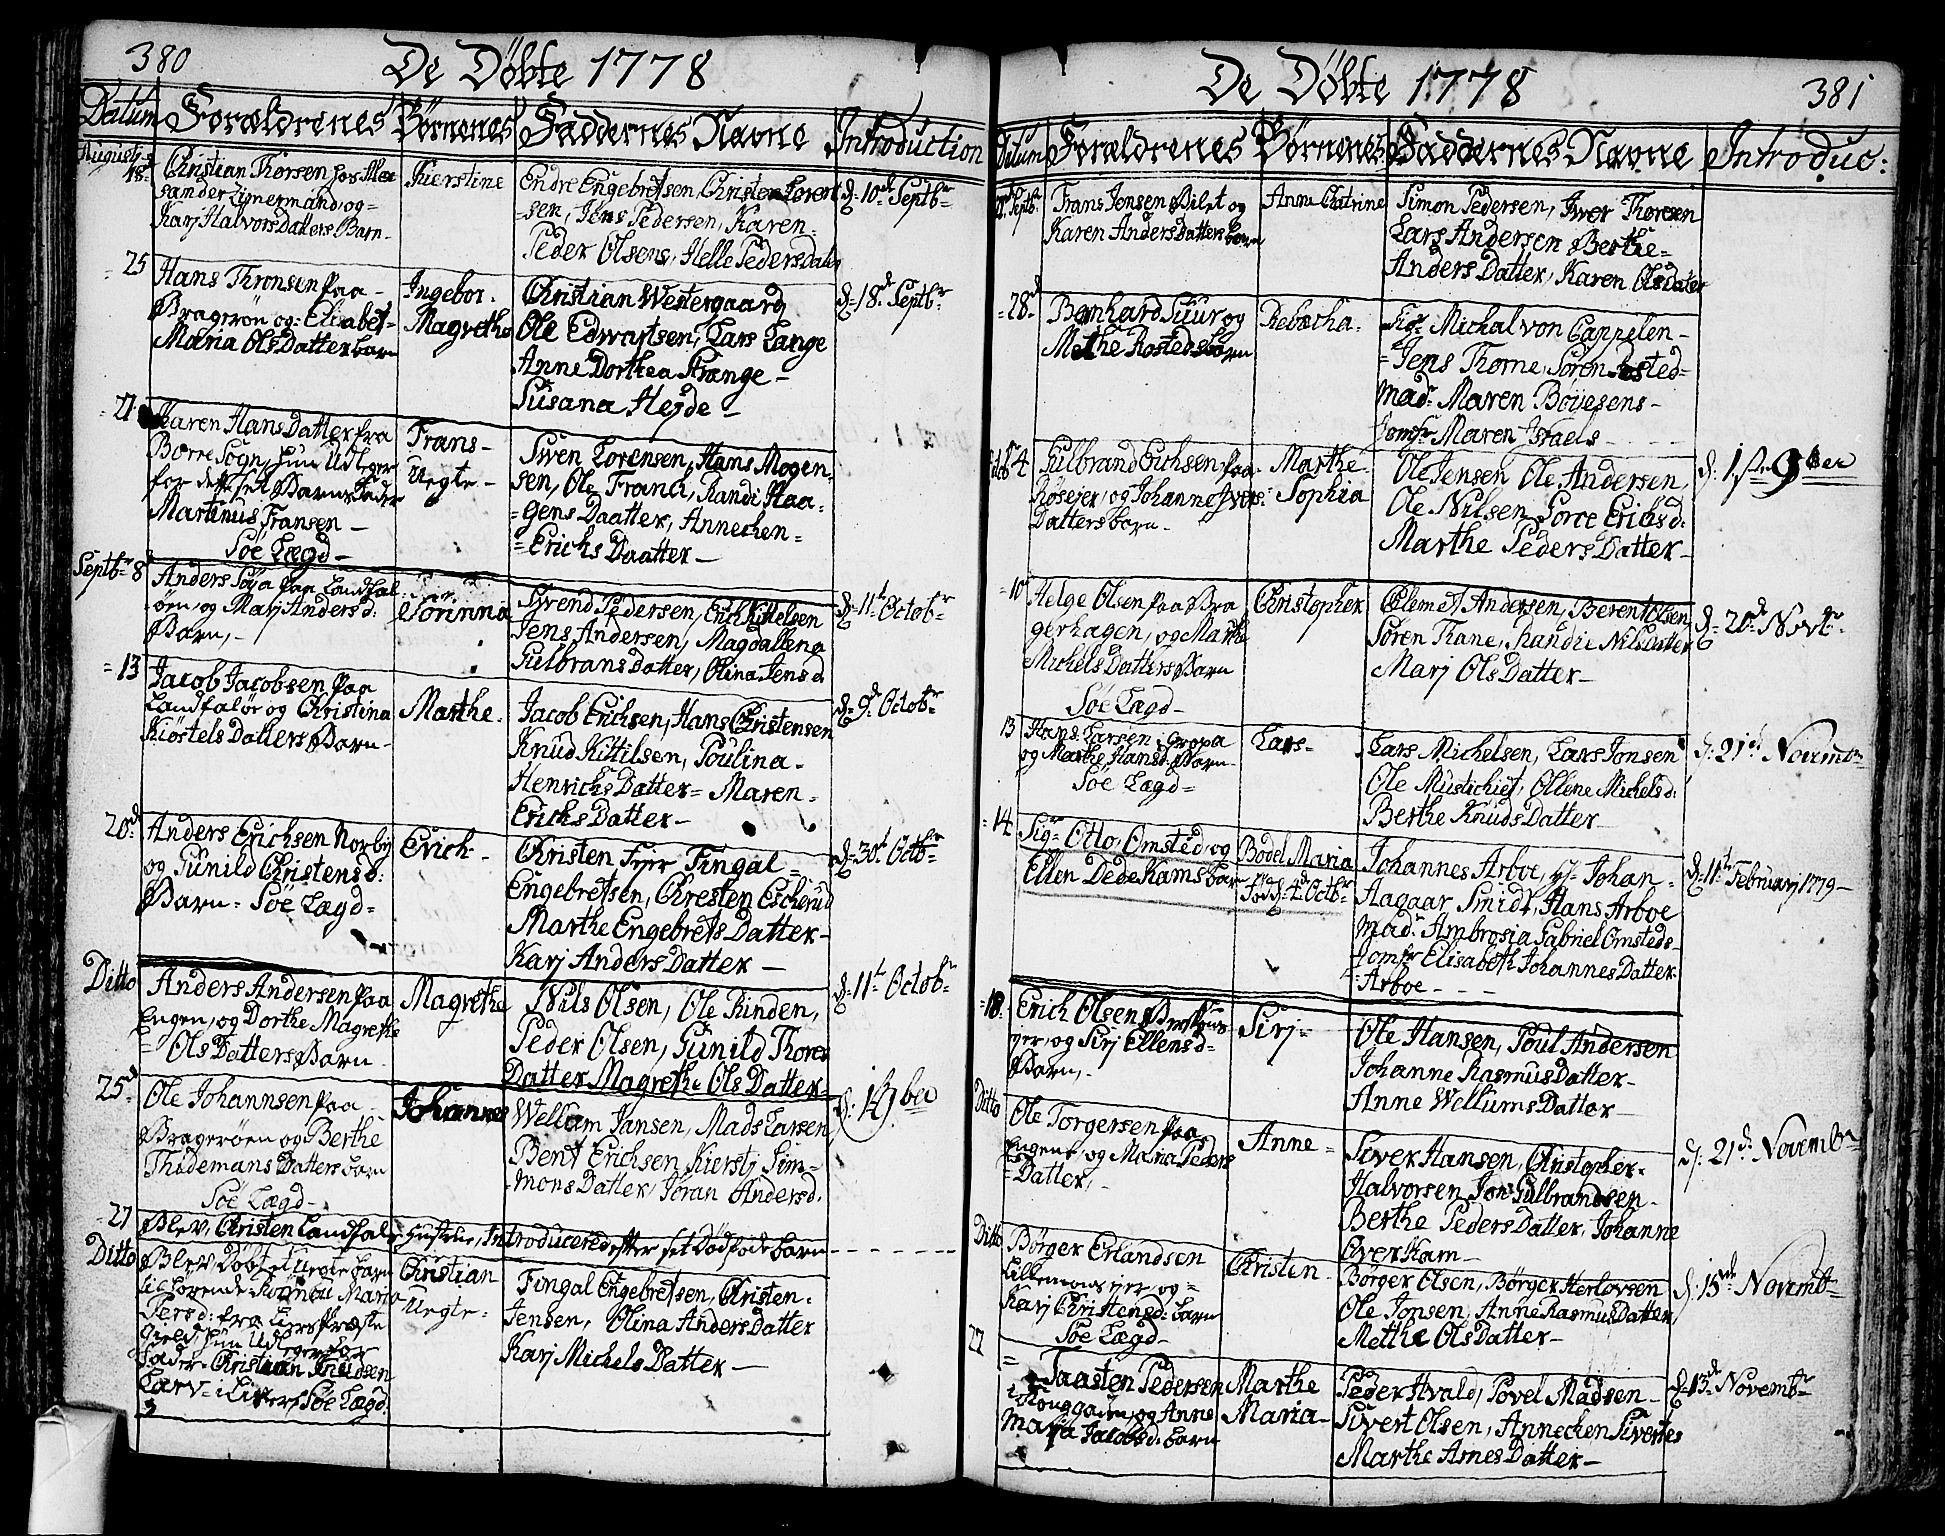 380
De Döbte 1778
Datum Forældrenes Börnenes Faddernes Navne Introduction
August
18. Christian Thorsen hos Alex
sander Zimermand, og
Karj Halvors Datters Barn
Kierstine
Endre Engebretsen, Christen Loren
sen, Jens Pedersen, Karen
Peder Olsens, Helle Peders Datter
d. 10de Septbr
25 Hans Thronsen paa
Bragerøn og Elisabet
Maria Ols Datters barn
Ingebor
Magrethe
Christian Westergaard
Ole Edwartsen, Lars Lange
Anne Dorthea Prange
Susana Hejde
d. 18de Septbr
27 Karen Hans Datter fra
Borre Sogn, hun Udleger
for dette sit Barns Fader
Martinus Fransen
Söe Lægd
Frans
Uegte
Swen Lorensen, Hans Mogen
sen, Ole Franci, Randi Haa
gens Daatter, Annechen
Erichs Daatter
Septbr 8 Anders Söya paa Landfal
öen, og Marj Anders d:
Barn,
Sörinna
Syvend Pedersen, Erich Kittelsen
Jens Andersen, Magdallena
Gulbrans Datter, Olina Jens d
d. 11te Octobr
13 Jacob Jacobsen paa
Landfalör og Christina
Kiöstels Datters Barn
Marthe
Jacob Erichsen, Hans Christensen
Knud Kittilsen, Poulina
Henrichs Datter Maren
Erichs Datter
d. 9de Octobr
20d Anders Erichsen Norby
og Gunild Christens d:
Barn Söe Lægd
Erich
Christen Fyer Fingal
Engebretsen, Chresten Escherud
Marthe Engebrets Datter
Karj Anders Datter
d. 30te Octbr
Ditto Anders Andersen paa
Engen, og Dorthe Magrethe
Ols Datters Barn
Magrethe
Nils Olsen, Ole Rinden,
Peder Olsen, Gunild Thores
Datter Magrethe Ols Datter
d. 11te Octobr
25d Ole Johannsen paa
Bragerøen og Berthe
Thidemans Datters barn
Söe Lægd
Johannes
Wellam Jansen, Mads Larsen
Bent Erichsen Kierstj Sim
mons Datter, Jöran Anders d.
27 Blev, Christen Landfals Hustrue, Introduceret efter sit Dödföde barn
Ditto Blev Döbt et Uegte barn
Maria
Pers d: fra Liers Præste
Gield, hun Udleger for
Fader Christian Knudsen
Larv i Lier, Söe Lægd
Christian
Uegte
Fingal Engebretsen, Christen
Jensen, Olina Anders Datter
Karj Michels Datter
381
De Döbte 1778
Datum Forældrenes Börnenes Faddernes Navne Introduc:
Septbr Frans Jonsen Bilet og
Karen Anders Datters barn
Anne Chatrine
Simon Pedersen, Iwer Thoresen
Lars Andersen Berthe
Anders Datter, Karen Ols Datter
28d Bernhard Suur og
Methe Rosteds barn
Rebæcha
Sigr Michal von Cappelen
Jens Thorne, Sören Rosted
Madr Maren Böyesens
Jomfr Maren Israels
Octob 4 Gulbrand Erichsen paa
Röseier, og Johanne Ivers
Datters barn
Marthe
Sophia
Ole Jensen Ole Andersen,
Ole Nilsen Sorce Erichs d:
Marthe Peders Datter
d. 1ste 9ber
10 Helge Olsen paa Bra
gerhagen, og Marthe
Michels Datters Barn
Söe Lægd
Christopher
Clemet Andersen, Berent Olsen
Sören Thane, Randie Nils Datter
Marj Ols Datter
d. 20de Novbr
13 Hans Larsen i Gropa
og Marthe Hans d: Barn
Söe Lægd
Lars
Lars Michelsen, Lars Jonsen
Ole Mustichiet, Ollene Michels d:
Berthe Knuds Datter
d: 21de Novembr
14 Sigr Otto Omsted, og
Ellen Dedekams barn
Bodel Maria
Föd d: 4de Octbr
Johannes Arboe, Johan
Aagaar Smidt, Hans Arboe
Madr Ambrosia Gabriel Omsteds
Jomfr Elisabeth Johannes Datter
Arboe
d. 11te Februarj 1779
18. Erich Olsen
og Sirj Ellens d
Barn,
Sirj
Ole Hansen, Poul Andersen
Johanne Rasmus Datter
Anne Wellums Datter
Ditto Ole Torgersen paa
Engene, og Maria Peders
Datter,
Anne
Siver Hansen, Christopher
Halvorsen Jon Gulbrandsen
Berthe Peders Datter, Johanne
Over Ham
d: 21de Novembr
Ditto Börger Erlandsen
Lillemons ejer, og
Karj Christens d: barn
Söe Lægd
Christen
Börger Olsen, Börger Herlovsen
Ole Jonsen, Anne Rasmus Datter
Metthe Ols Datter
d: 15de Novembr
27
Taasten Pedersen
i Konggaden, og Anne
Maria Jacobs d: barn
Marthe
Maria
Peder Hvald, Povel Madsen
Sivert Olsen, Annechen Siverttes
Marthe Arnes Datter
d. 13de Novembr